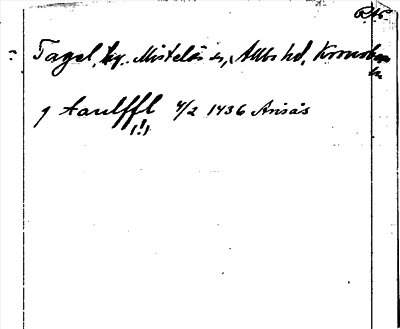 Tagel, by. Mistelås sn, Allbo hd, Kronobergs
ln
J taulffl 4/2 1436 Arisås
(!)